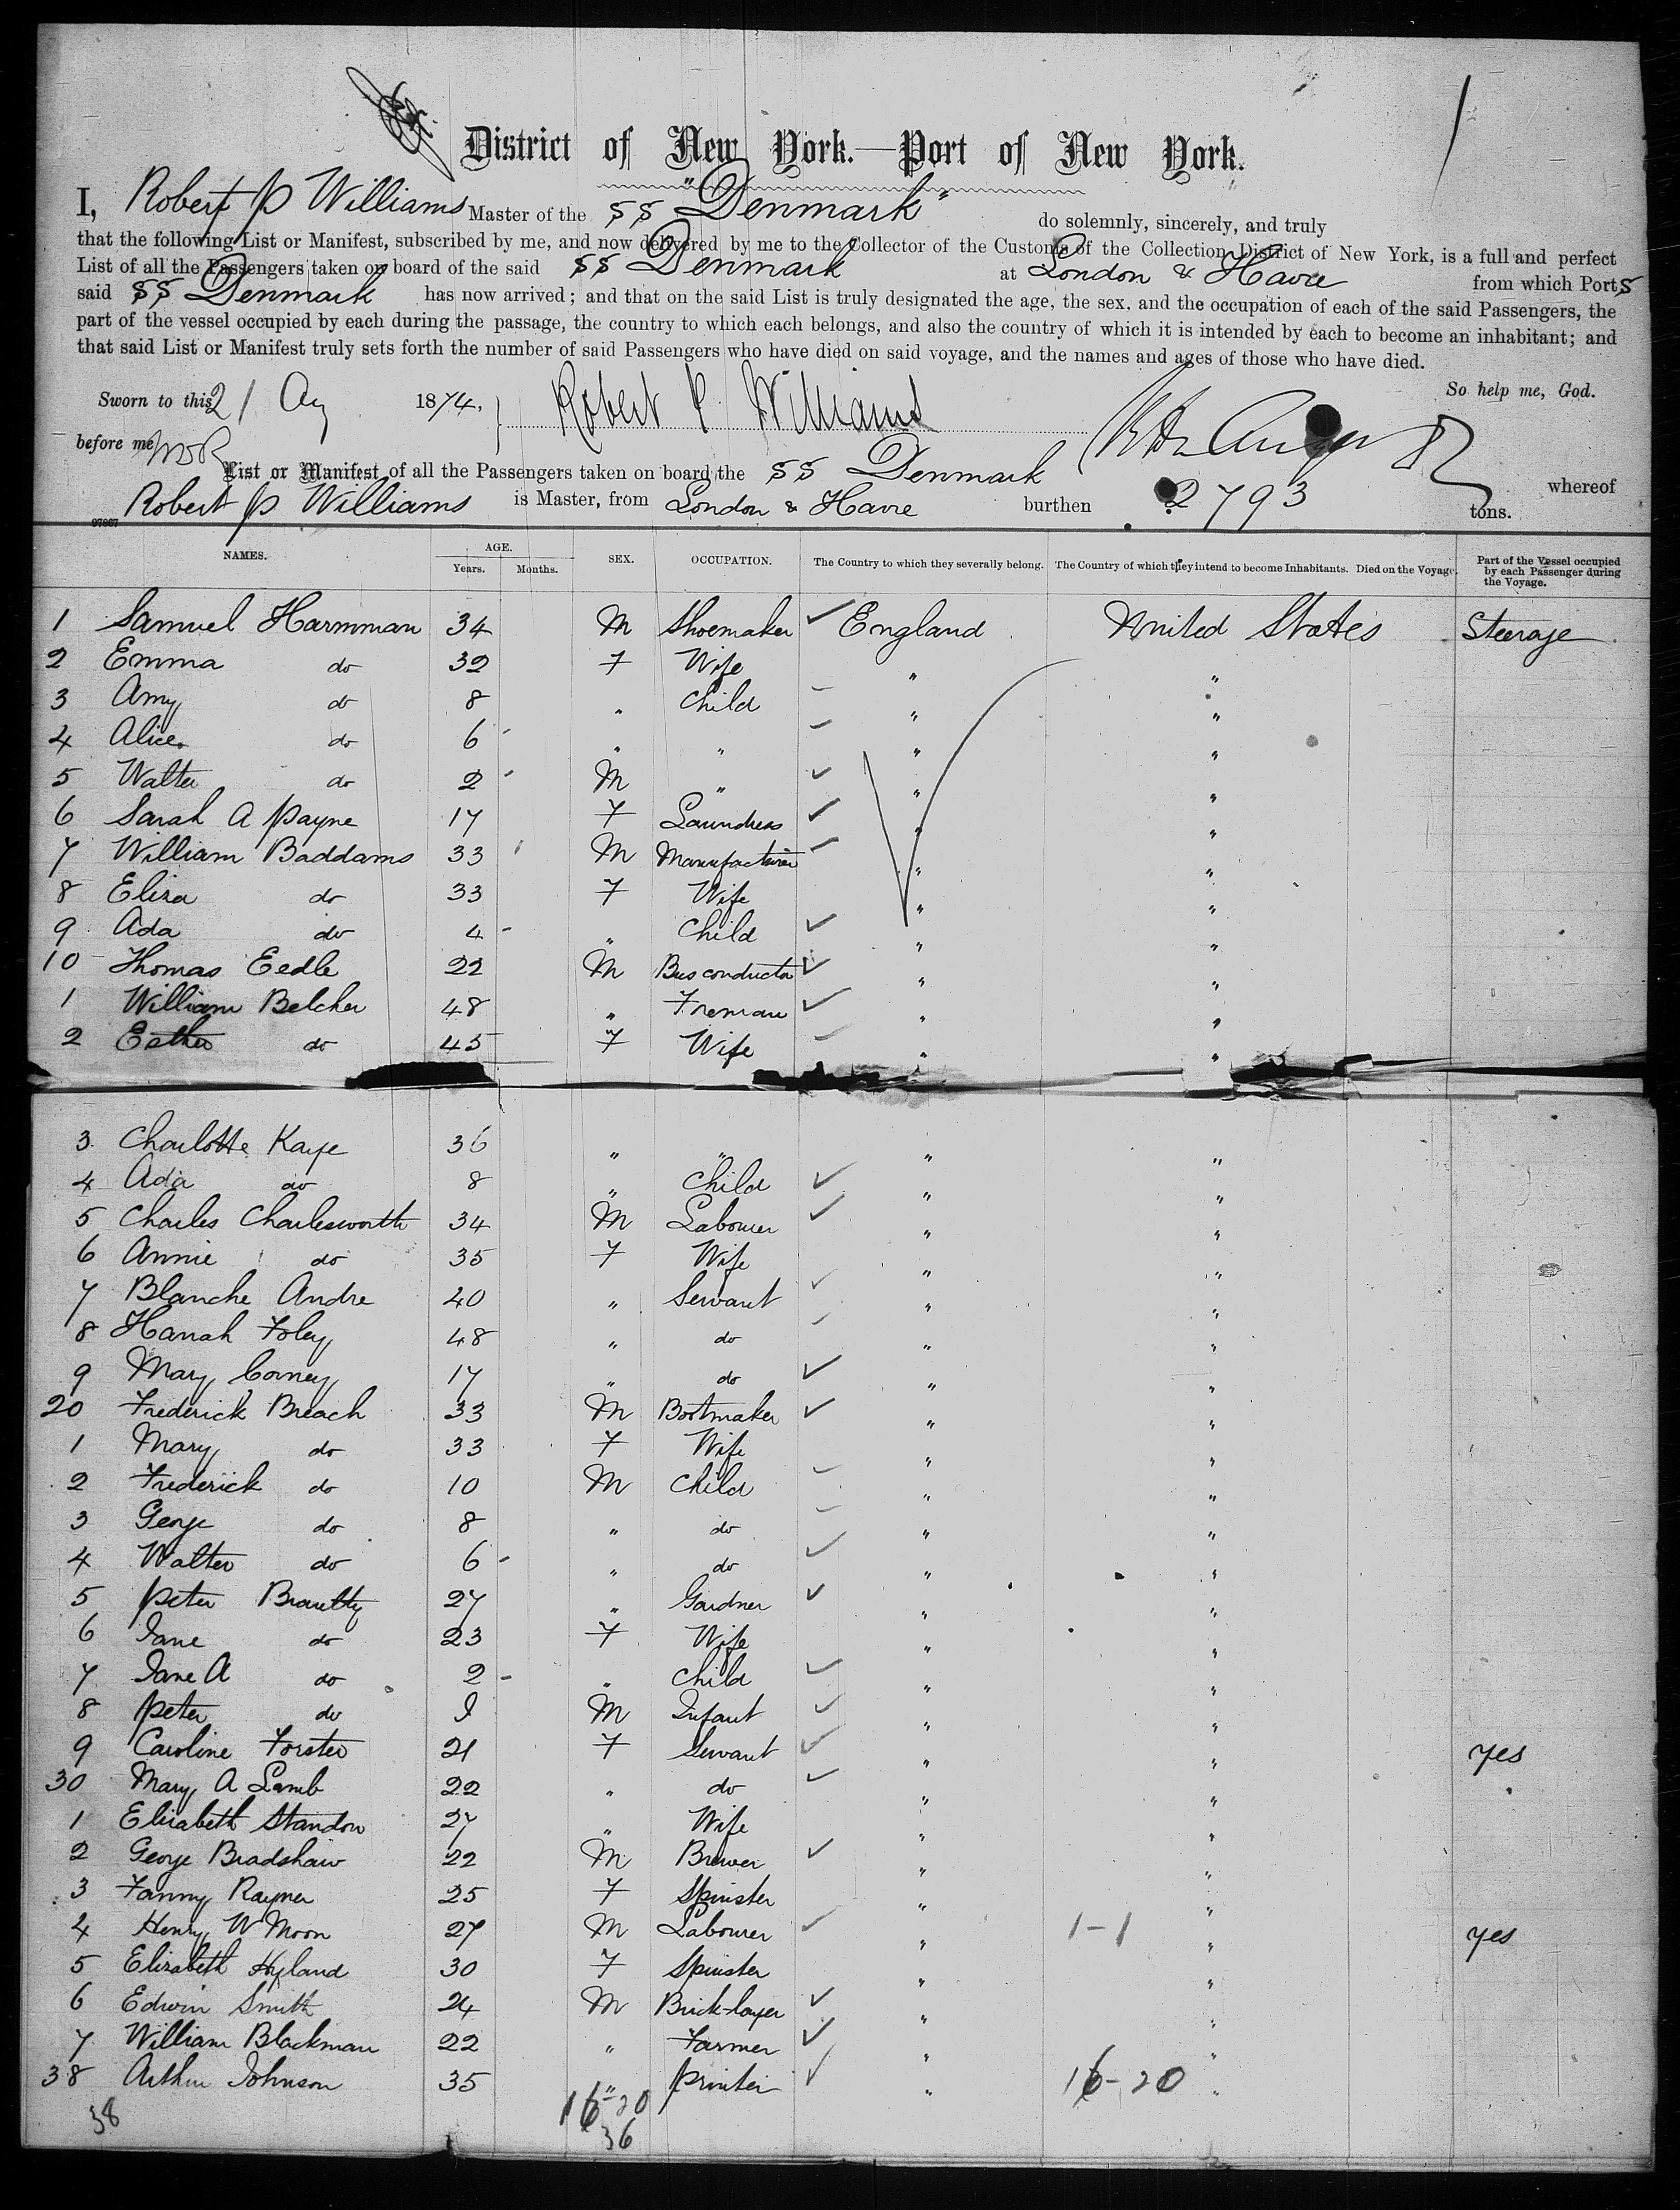 1
District of New York.—Port of New York.
I, Robert P Williams Master of the SS "Denmark" do solemnly, sincerely, and truly
that the following List or Manifest, subscribed by me, and now delivered by me to the Collector of the Customs of the Collection District of New York, is a full and perfect
List of all the Passengers taken on board of the said SS Denmark at London & Havre from which Ports
said SS Denmark has now arrived; and that on the said List is truly designated the age, the sex, and the occupation of each of the said Passengers, the
part of the vessel occupied by each during the passage, the country to which each belongs, and also the country of which it is intended by each to become an inhabitant; and
that said List or Manifest truly sets forth the number of said Passengers who have died on said voyage, and the names and ages of those who have died.
So help me, God.
Sworn to this 21 Aug 1874, Robert P Williams
before me
List or Manifest of all the Passengers taken on board the SS Denmark whereof
Robert P Williams is Master, from London & Havre burthen 2793 tons.
97867
NAMES. AGE. Years. Months. SEX. OCCUPATION. The Country to which they severally belong. The Country of which they intend to become Inhabitants. Died on the Voyage. Part of the Vessel occupied by each Passenger during the Voyage.
1 Samuel Harmman 34 M Shoemaker England United States Steerage
2 Emma do 32 F Wife " "
3 Amy do 8 " Child " "
4 Alice do 6 " " " "
5 Walter do 2 M " " "
6 Sarah A Payne 17 F Laundress " "
7 William Baddams 33 M Manufacturer " "
8 Eliza do 33 F Wife " "
9 Ada do 4 " Child " "
10 Thomas Eedle 22 M Bus conductor " "
1 William Belcher 48 " Foreman " "
2 Esther do 45 F Wife " "
3 Charlotte Kaye 36 " " " "
4 Ada do 8 " Child " "
5 Charles Charlesworth 34 M Labourer " "
6 Annie do 35 F Wife " "
7 Blanche Andre 40 " Servant " "
8 Hanah Foley 48 " do " "
9 Mary Corney 17 " do " "
20 Frederick Breach 33 M Bootmaker " "
1 Mary do 33 F Wife " "
2 Frederick do 10 M Child " "
3 George do 8 " do " "
4 Walter do 6 " do " "
5 Peter 27 " Gardner " "
6 Jane do 23 F Wife " "
7 Jane A do 2 " Child " "
8 Peter do M Infant " "
9 Caroline Forster 21 F Servant " " yes
30 Mary A Lamb 22 " do " "
1 Elizabeth Standon 27 " Wife " "
2 George Bradshaw 22 M Brewer " "
3 Fanny Rayner 25 F Spinster " "
4 Henry W Moon 27 M Labourer " 1-1 " yes
5 Elizabeth Hyland 30 F Spinster " "
6 Edwin Smith 24 M Brick-layer " "
7 William Blackman 22 " Farmer " "
38 Arthur Johnson 35 " Printer " 16-20 "
38 16-20
36